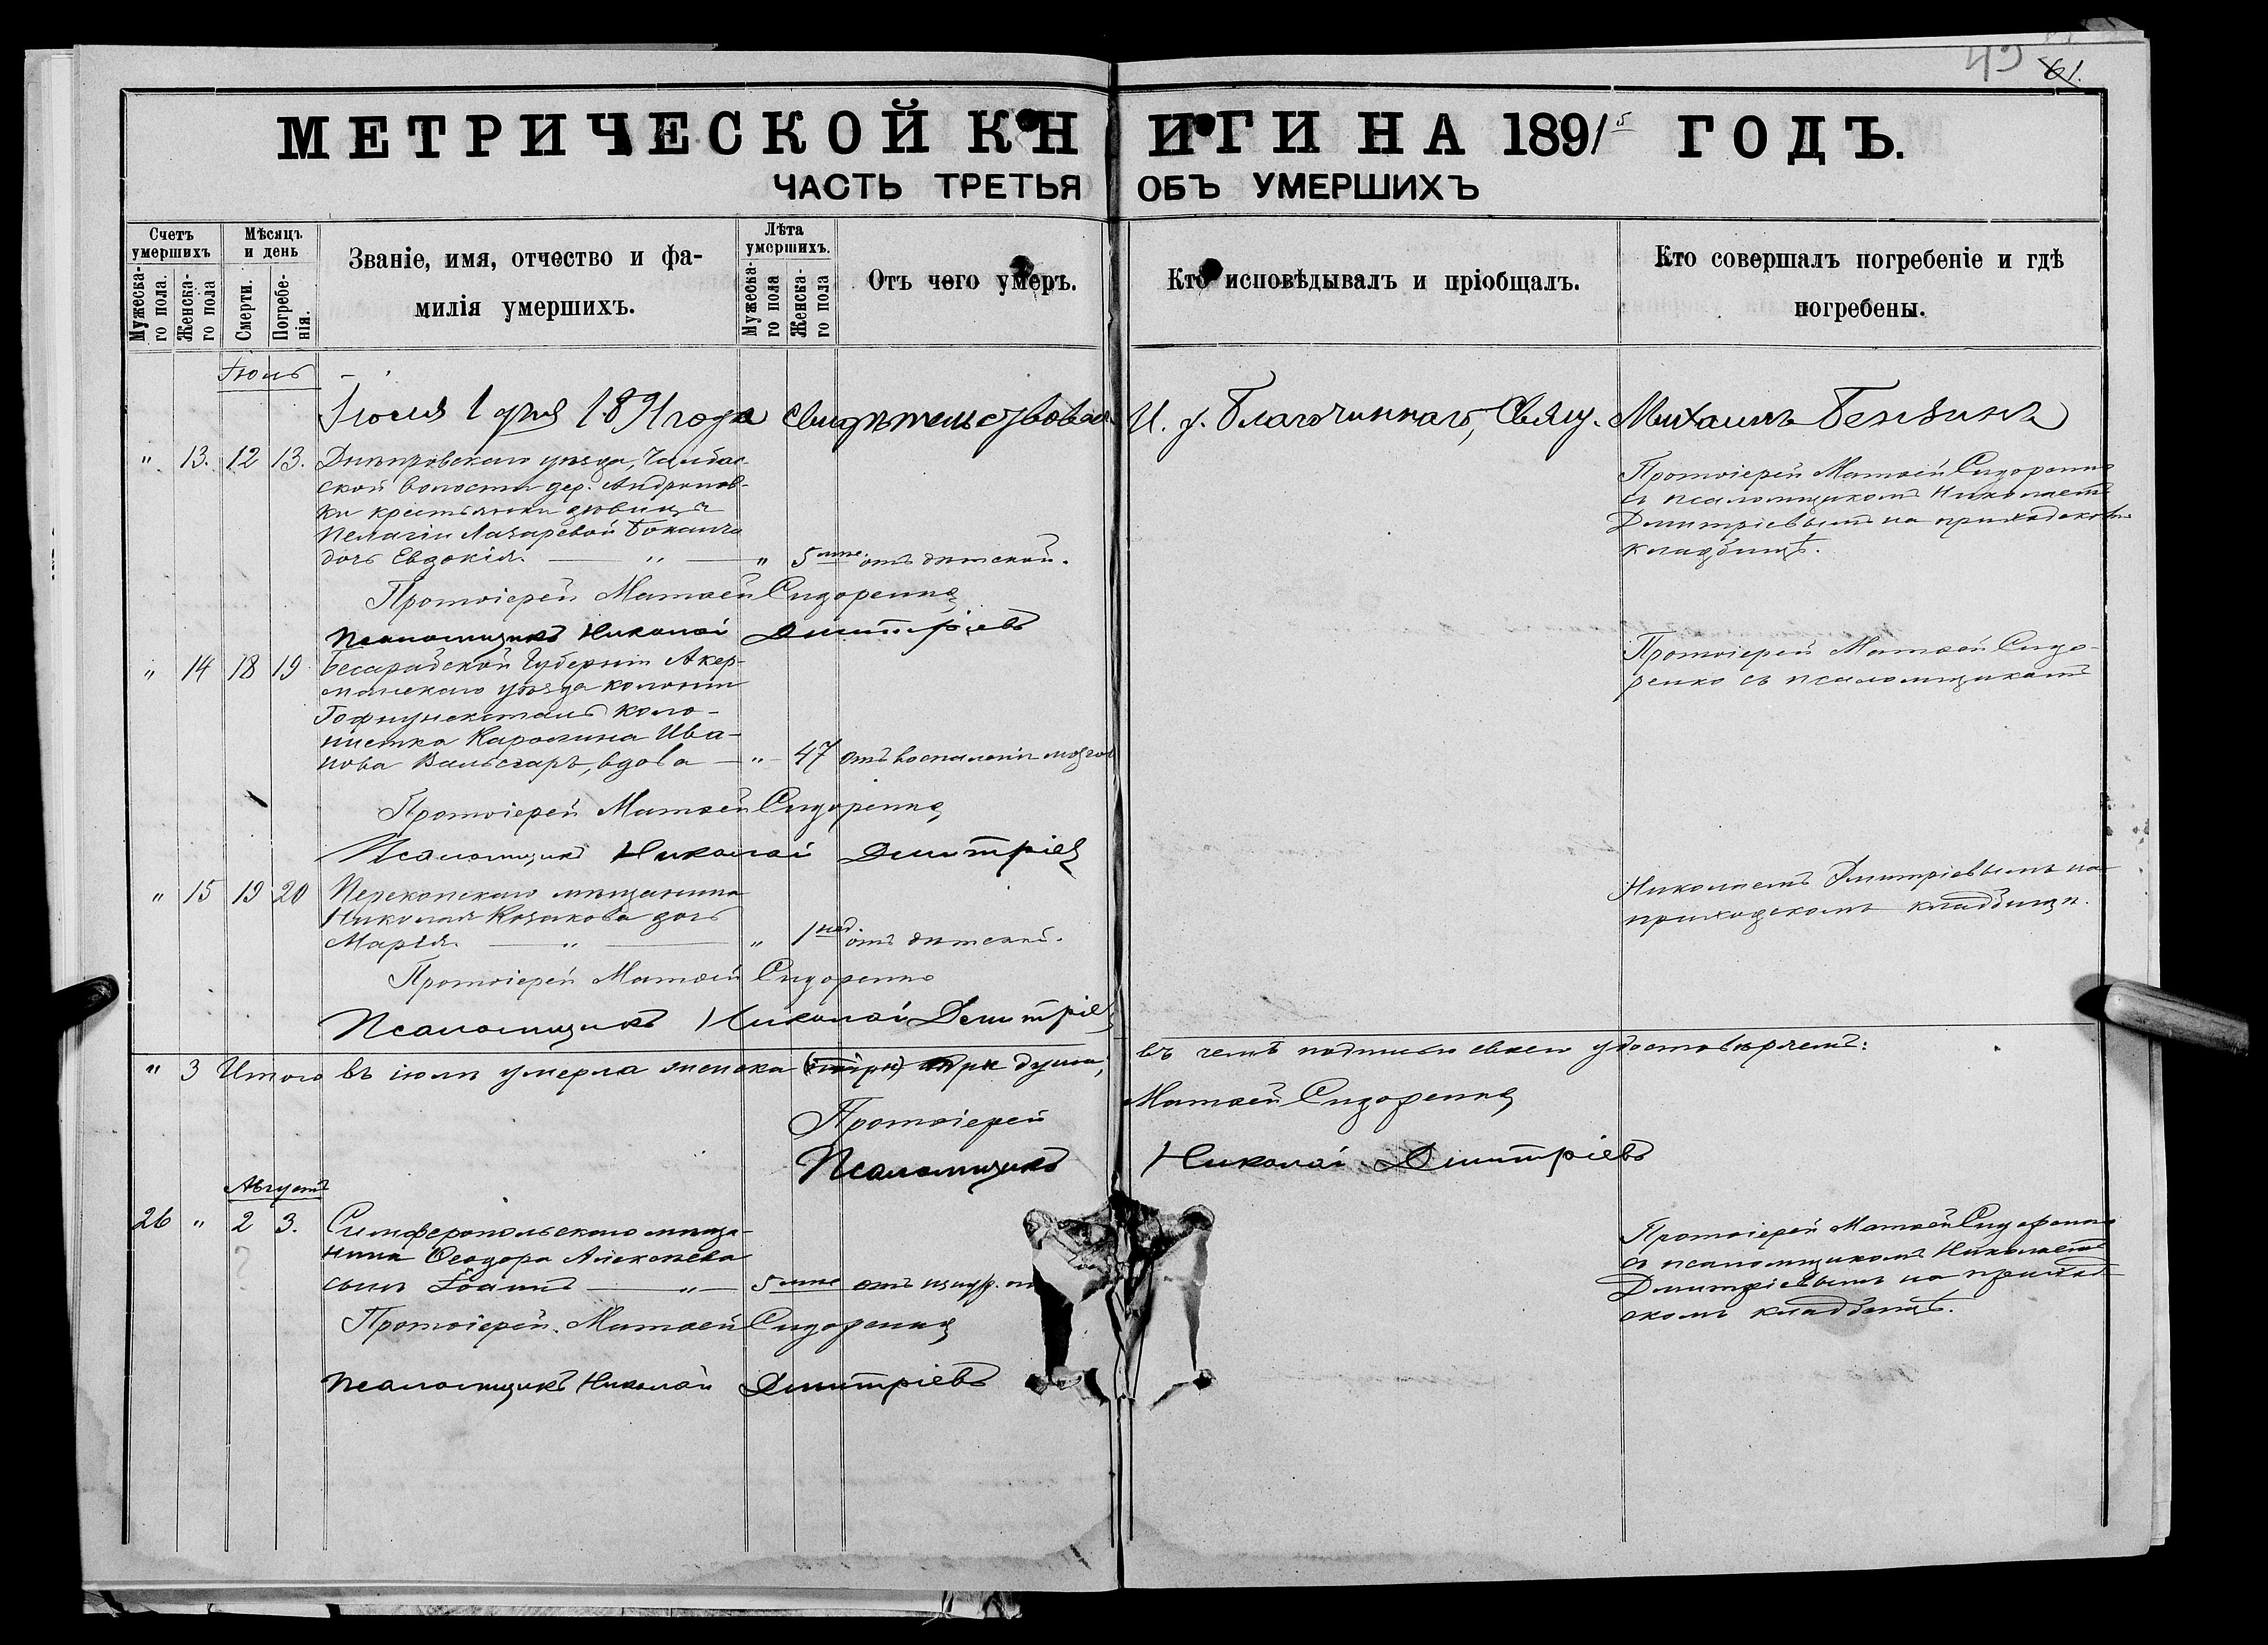 49 61.
МЕТРИЧЕСКОЙ КНИГИ НА 1891 ГОДЪ.
ЧАСТЬ ТРЕТЬЯ ОБЪ УМЕРШИХЪ
Счетъ умершихъ
Мужеска-го пола.
Женска-го пола
Мѣсяцъ и день
Смерти.
Погребе-нія.
Званіе, имя, отчество и фа-
милія умершихъ.
Лѣта умершихъ.
Мужеска-го пола
Женска-го пола
Отъ чего умеръ.
Кто исповѣдывалъ и пріобщалъ.
Кто совершалъ погребеніе и гдѣ
погребены.
Іюль
Іюля 1 дня 1891 года свидѣтельствовалъ И. д. Благочиннаго, Свящ. Михаилъ
" 13. 12 13. Днѣпровскаго уѣзда, Чалбас-
ской волости дер. Андронов-
ки крестьянки дѣвицы
Пелагіи Лазаревой
дочь Евдокія. " " 5 мѣс. отъ дѣтской.
Протоіерей Матѳей Сидоренко
съ псаломщикомъ Николаемъ
Дмитріевымъ на приходскомъ
кладбищѣ.
Протоіерей Матѳей Сидоренко
Псаломщикъ Николай Дмитріевъ
" 14 18 19 Бесарабской Губерніи Акер-
манскаго уѣзда колоніи
Гофнунгсталь коло-
нистка Каролина Ива-
нова вдова " 47 отъ воспаленія мозгов
Протоіерей Матѳей Сидо-
ренко съ псаломщикомъ
Протоіерей Матѳей Сидоренко
Псаломщикъ Николай Дмитріев
" 15 19 20 Перекопскаго мѣщанина
Николая Козакова дочь
Марія. " " 1 нед. отъ дѣтской.
Николаемъ Дмитріевымъ на
приходскомъ кладбищѣ.
Протоіерей Матѳей Сидоренко
Псаломщикъ Николай Дмитріев
" 3 Итого въ іюлѣ умерла женска три душа, въ чемъ подписью своею удостовѣряемъ:
Протоіерей Матѳей Сидоренко
Псаломщикъ Николай Дмитріевъ
Августъ
26 " 2 3. Симферопольскаго мѣща-
нина Ѳеодора Алексѣева
сынъ Іоаннъ " 5 мѣс отъ
Протоіерей Матѳей Сидоренко
съ псаломщикомъ Николаемъ
Дмитріевымъ на приход-
скомъ кладбищѣ.
Протоіерей Матѳей Сидоренко
Псаломщикъ Николай Дмитріевъ